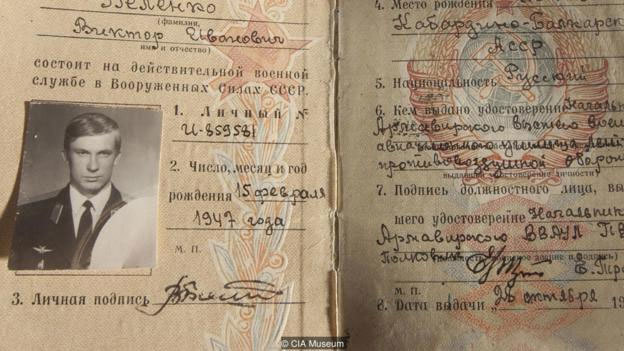 Беленко
(фамилия,
Виктор Иванович
имя и отчество)
состоит на действительной военной
службе в Вооруженных Силах СССР.
1. Личный №
И-859581
2. Число, месяц и год
рождения 15 февраля
1947 года
М. П.
3. Личная подпись
4. Место рождения
Кабардино-Балкарская
АССР
5. Национальность Русский
6. Кем выдано удостоверение Начальник
Армавирского высшего воен
авиационного училища
противовоздушной оборон
выдавшей удостоверение личности)
7. Подпись должностного лица, вы
шего удостоверение Начальник
Армавирского ВВАУЛ
Полковник
М. П.
8. Дата выдачи „26 октября 19
© CIA Museum